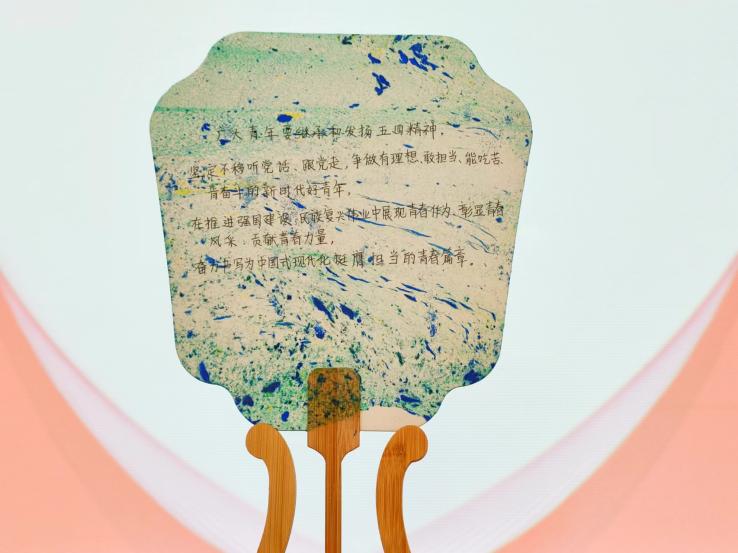 广大青年要继承和发扬五四精神，
坚定不移听党话、跟党走，争做有理想、敢担当、能吃苦、
肯奋斗的新时代好青年，
在推进强国建设、民族复兴伟业中展现青春作为、彰显青春
风采、贡献青春力量，
奋力书写为中国式现代化挺膺担当的青春篇章。